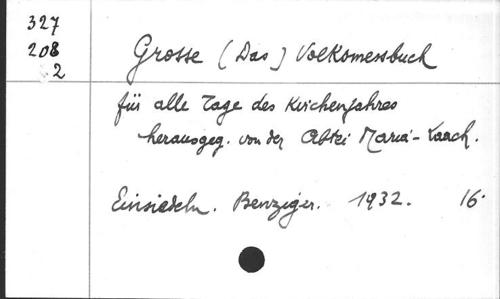 327
208
2
Grosse (Das) Volksmessbuch
für alle Tage des Kirchenjahres
herausgeg. von der Abtei Maria-Laach.
Einsiedeln. Benziger. 1932. 16°